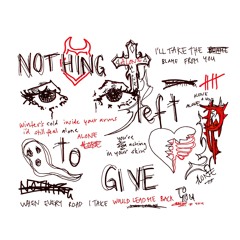 NOTHING
I'LL TAKE THE
BLAME FROM YOU
left
winter's cold inside your arms
i'd still feel alone
ALONE
you're
aching
in your skin
TO
GIVE
NOTHING
TO
YOU
WHEN EVERY ROAD I TAKE WOULD LEAD ME BACK